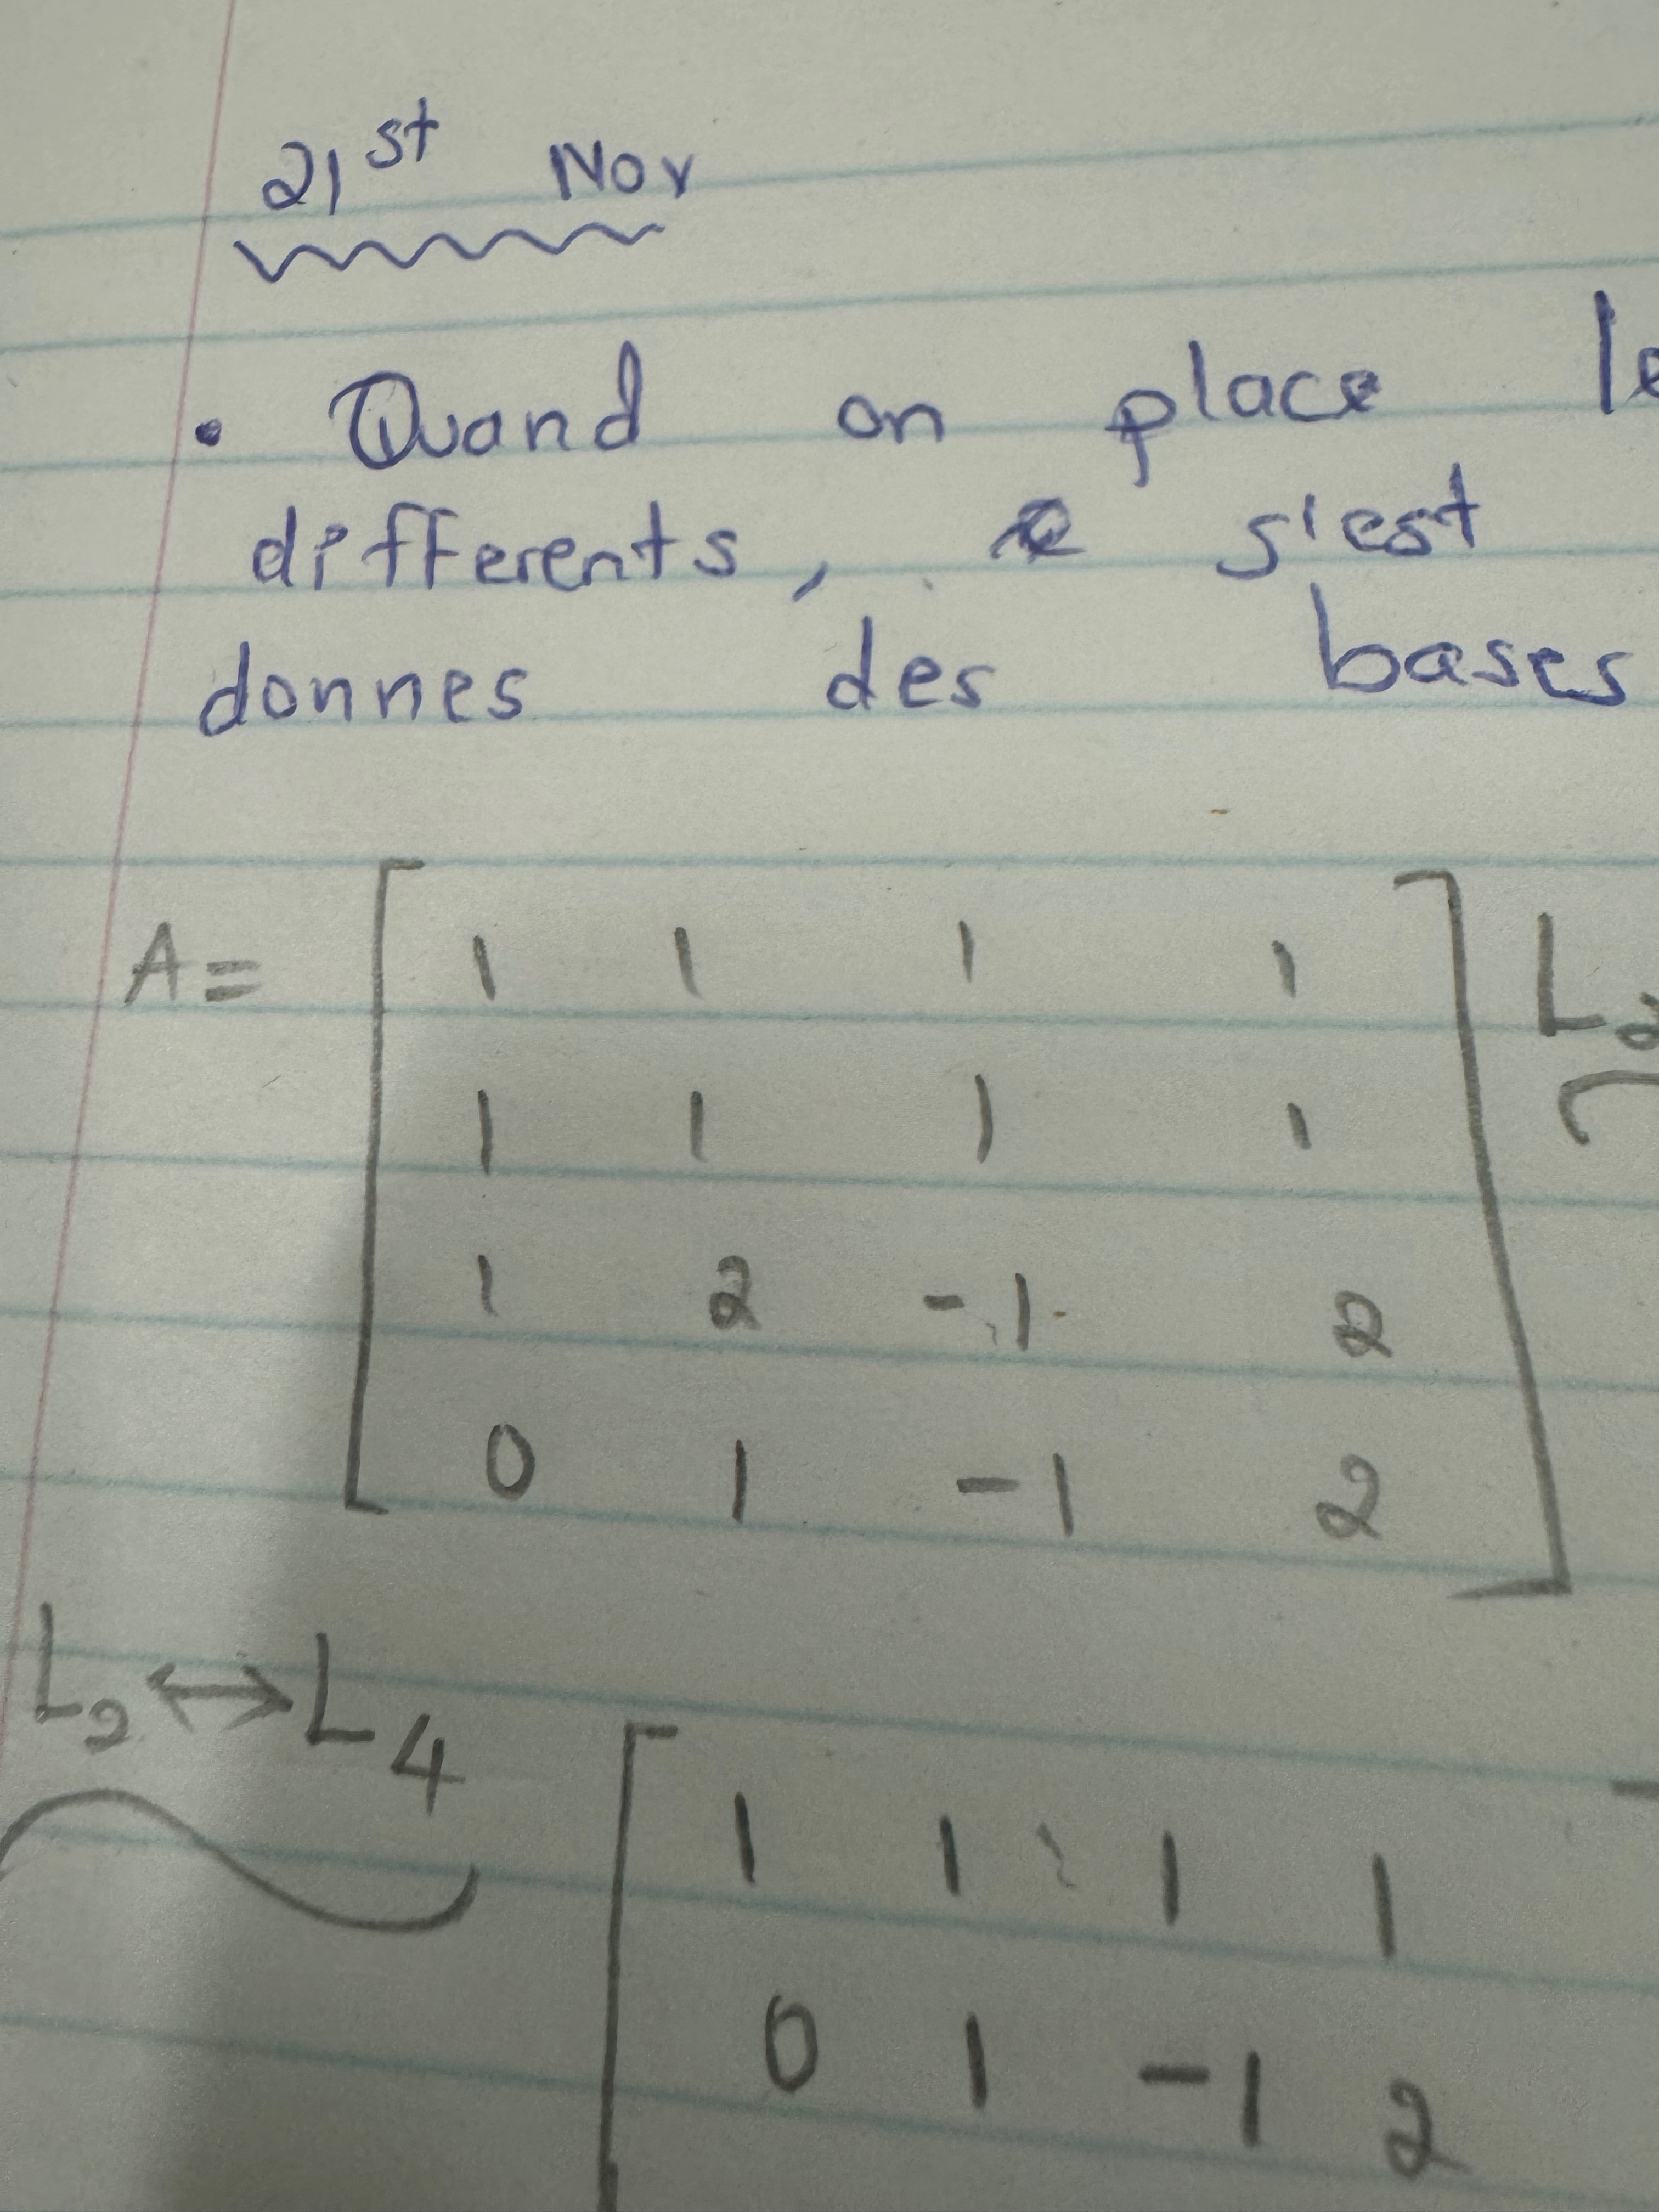 21st Nov
• Quand on place
differents, s'est
donnes des bases
A= [ 1 1 1 1 ] L2
1 1 1 1
1 2 -1 2
0 1 -1 2
L2 ↔ L4
[ 1 1 1 1
0 1 -1 2